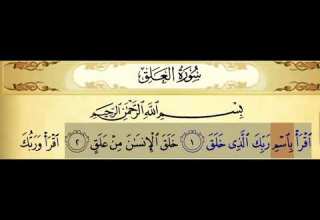 سُورَةُ الْعَلَقِ
بِسْمِ اللَّهِ الرَّحْمَٰنِ الرَّحِيمِ
اقْرَأْ بِاسْمِ رَبِّكَ الَّذِي خَلَقَ ١ خَلَقَ الْإِنسَانَ مِنْ عَلَقٍ ٢ اقْرَأْ وَرَبُّكَ